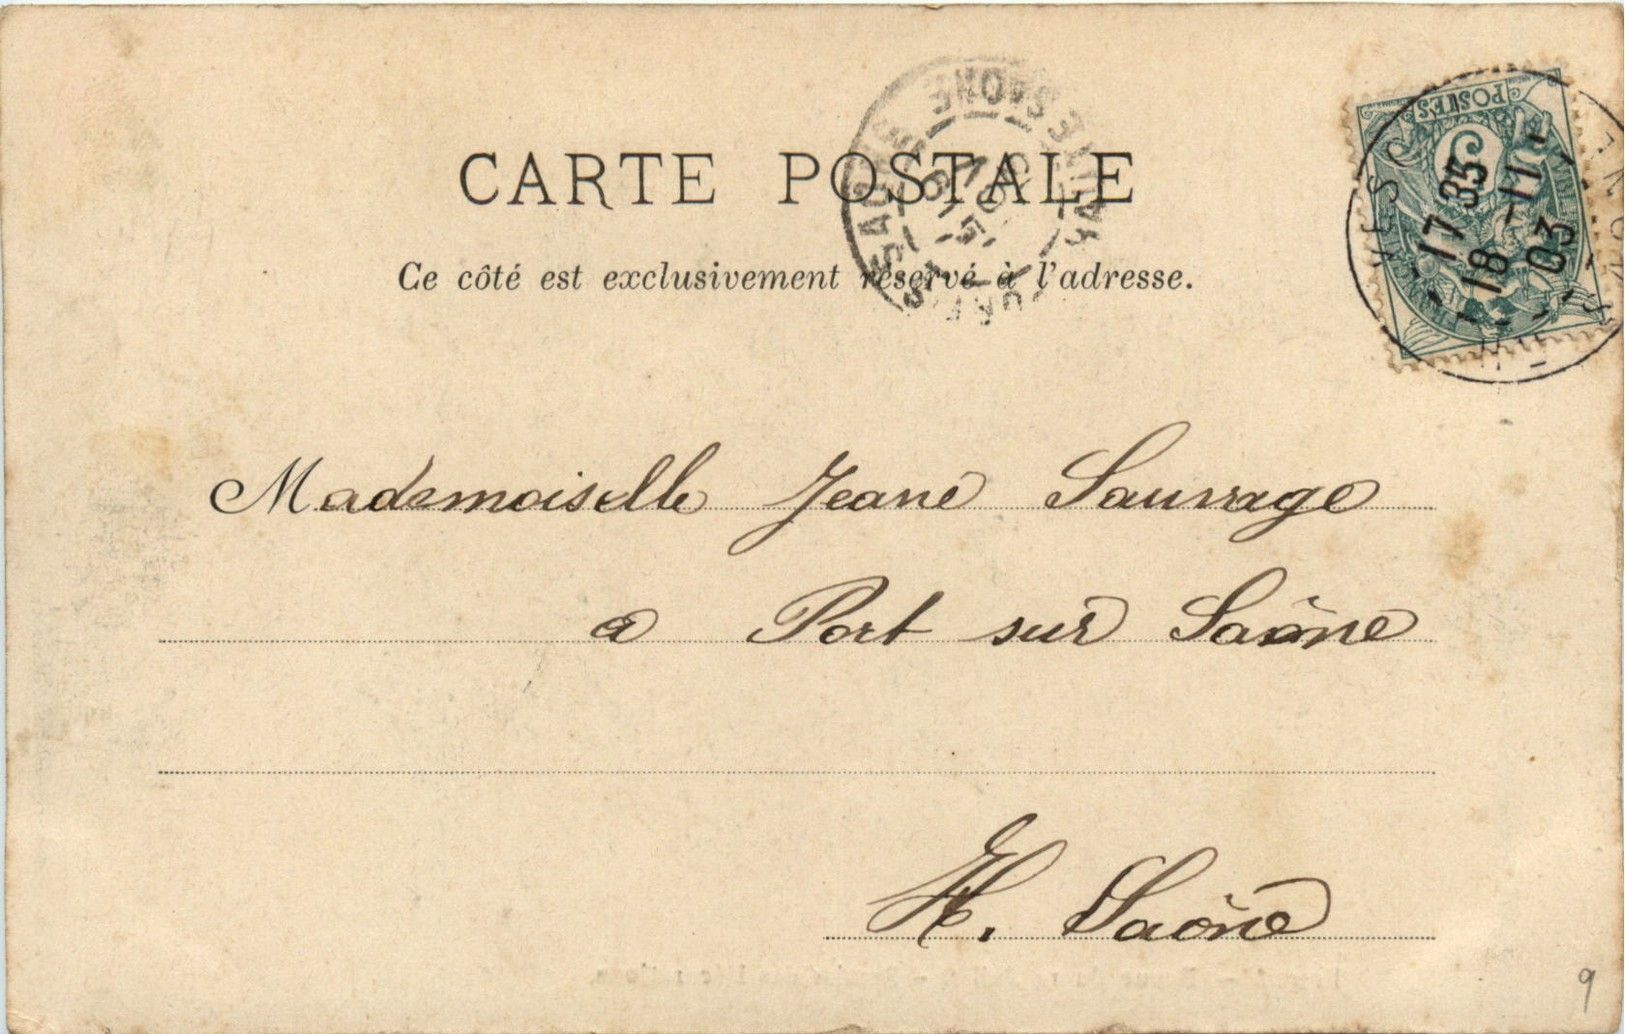 CARTE POSTALE
Ce côté est exclusivement réservé à l'adresse.
POSTES
5
17 35
18 -11
03
HAUTE SAONE
Mademoiselle Jeane Sauvage
a Port sur Saône
H. Saône
9